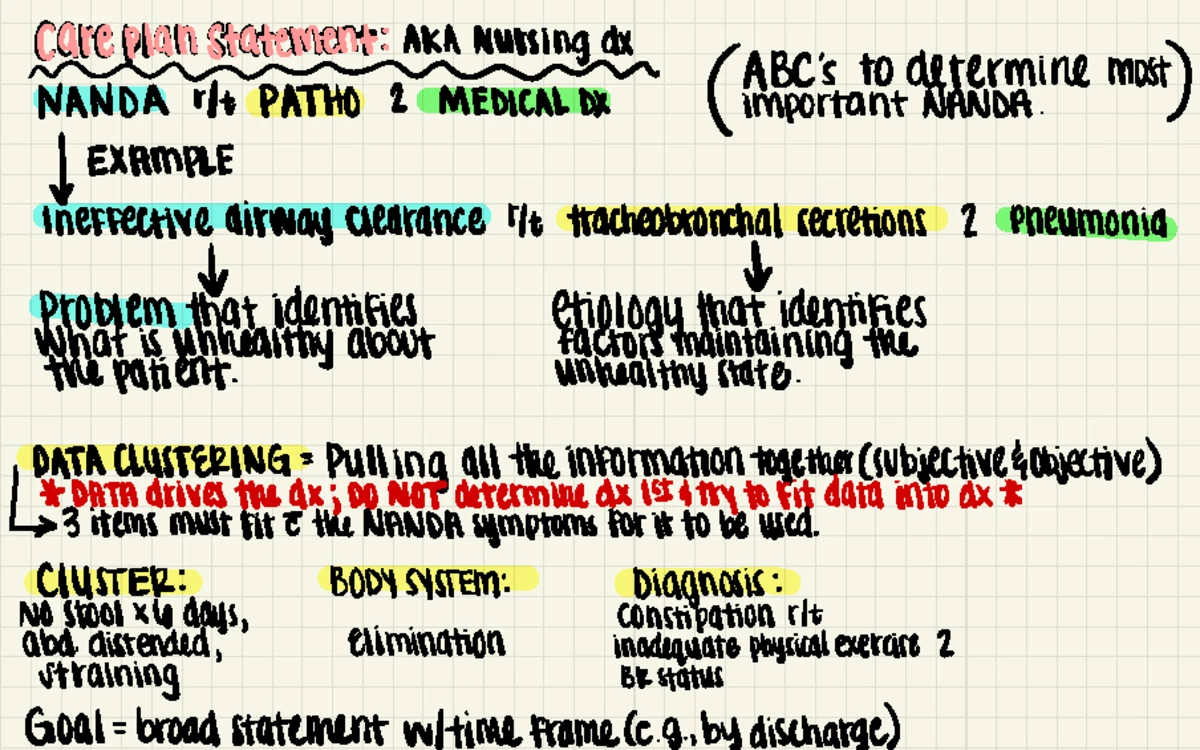 Care plan Statement: AKA Nursing dx
NANDA r/t PATHO 2 MEDICAL DX
(ABC's to determine most
important NANDA.)
EXAMPLE
Ineffective airway clearance r/t tracheobronchal secretions 2 Pneumonia
Problem that identifies
What is unhealthy about
the patient.
etiology that identifies
factors maintaining the
unhealthy state.
DATA CLUSTERING = Pulling all the information together (subjective & objective)
* DATA drives the dx; DO NOT determine dx 1st & try to fit data into dx *
3 items must fit c̄ the NANDA symptoms for it to be used.
CLUSTER:
No stool x 6 days,
abd distended,
straining
BODY SYSTEM:
Elimination
Diagnosis:
Constipation r/t
inadequate physical exercise 2
BR status
Goal = broad statement w/time frame (e.g., by discharge)